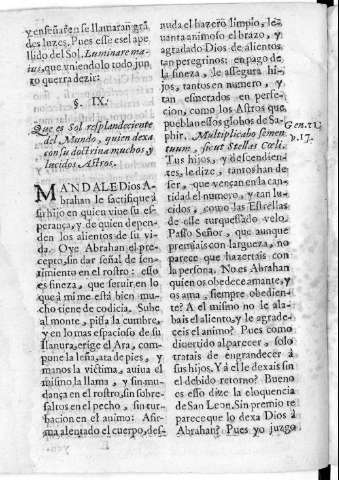 y enseñaren se llamaran grã
des luzes. Pues esse es el ape
llido del Sol. Luminare ma-
ius, que vniendolo todo jun
to querra dezir:
§. IX.
Que es Sol resplandeciente
del Mundo, quien dexa
con su doctrina muchos, y
lucidos Astros.
MANDALE Dios A-
brahan le sacrifique à
su hijo en quien viue su es-
perança, y de quien depen-
den los alientos de su vi-
da. Oye Abrahan el pre-
cepto, sin dar señal de sen-
timiento en el rostro: esso
es fineza, que seruir en lo
que à mi me està bien mu-
cho tiene de codicia. Sube
al monte, pissa la cumbre,
y en lo mas espacioso de su
llanura, erige el Ara, com-
pone la leña, ata de pies, y
manos la victima, auiua el
mismo la llama, y sin mu-
dança en el rostro, sin sobre-
saltos en el pecho, sin tur-
bacion en el animo: Afir-
ma alentado el cuerpo, des-
nuda el hazero limpio, le-
uanta animoso el brazo, y
agradado Dios de alientos
tan peregrinos: en pago de
la fineza, le assegura hi-
jos, tantos en numero, y
tan esmerados en perfe-
cion, como los Astros que
pueblan essos globos de Sa-
phir. Multiplicabo semen
tuum, sicut Stellas Cœli.
Tus hijos, y descendien-
tes, le dize, tanto han de
ser, que vençan en la can-
tidad el numero, y tan lu-
cidos, como las Estrellas
de esse turquessado velo.
Passo Señor, que aunque
premiais con largueza, no
parece que hazertais con
la persona. No es Abrahan
quien os obedece amante, y
os ama, siempre obedien-
te? A el mismo no le ala-
bais el aliento, y le agrade-
ceis el animo? Pues como
diuertido al parecer, solo
tratais de engrandecer à
sus hijos. Y à el le dexais sin
el debido retorno? Bueno
es esso dize la eloquencia
de San Leon. Sin premio te
parece que lo dexa Dios à
Abrahan? Pues yo juzgo